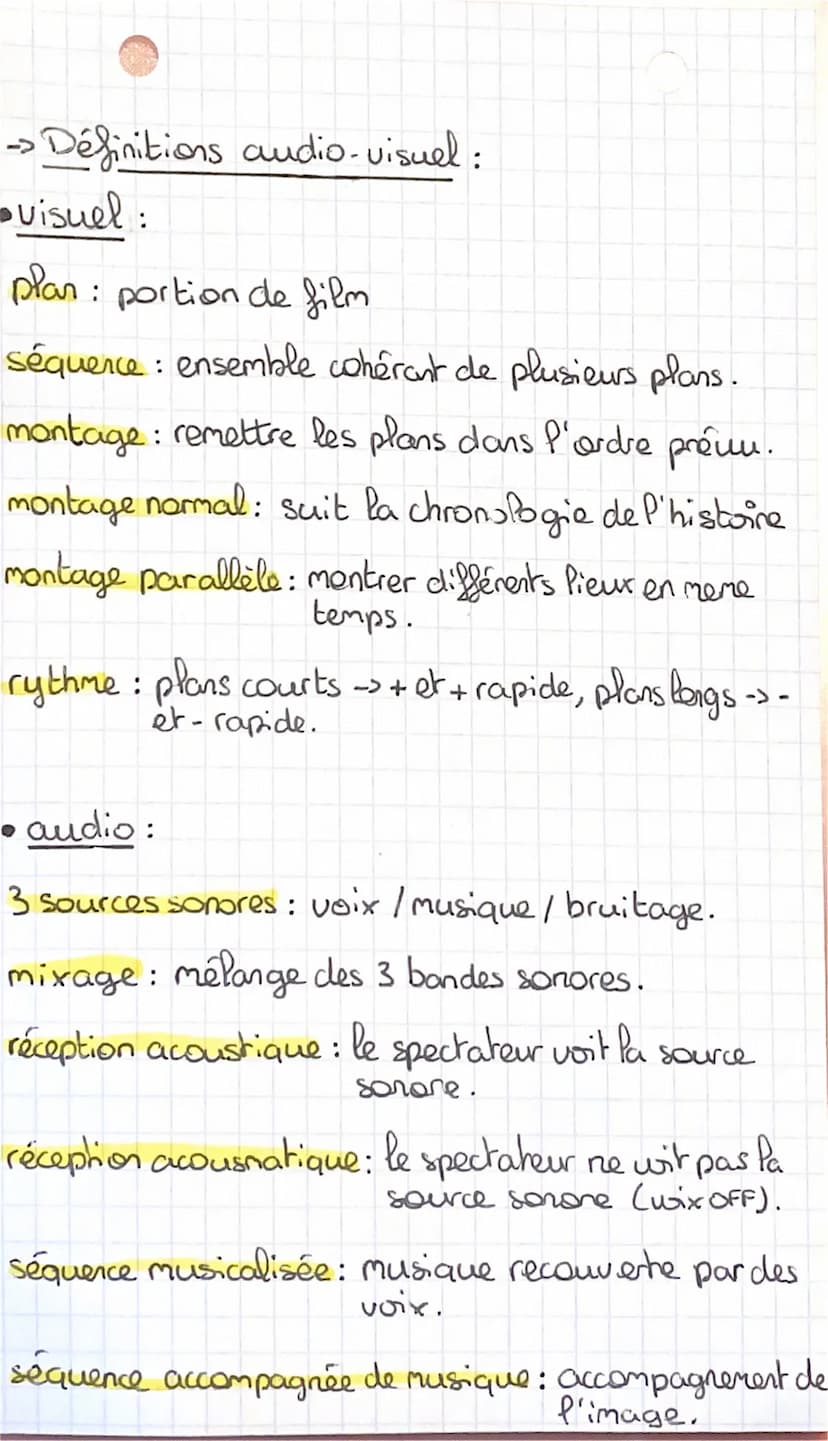 -> Définitions audio-visuel :
• visuel :
plan : portion de film
séquence : ensemble cohérant de plusieurs plans.
montage : remettre les plans dans l'ordre prévu.
montage normal : suit la chronologie de l'histoire
montage parallèle : montrer différents lieux en meme
temps.
rythme : plans courts -> + et + rapide, plans longs -> -
et - rapide.
• audio :
3 sources sonores : voix / musique / bruitage.
mixage : mélange des 3 bandes sonores.
réception acoustique : le spectateur voit la source
sonore.
réception acousmatique : le spectateur ne voit pas la
source sonore (voix OFF).
séquence musicalisée : musique recouverte par des
voix.
séquence accompagnée de musique : accompagnement de
l'image.